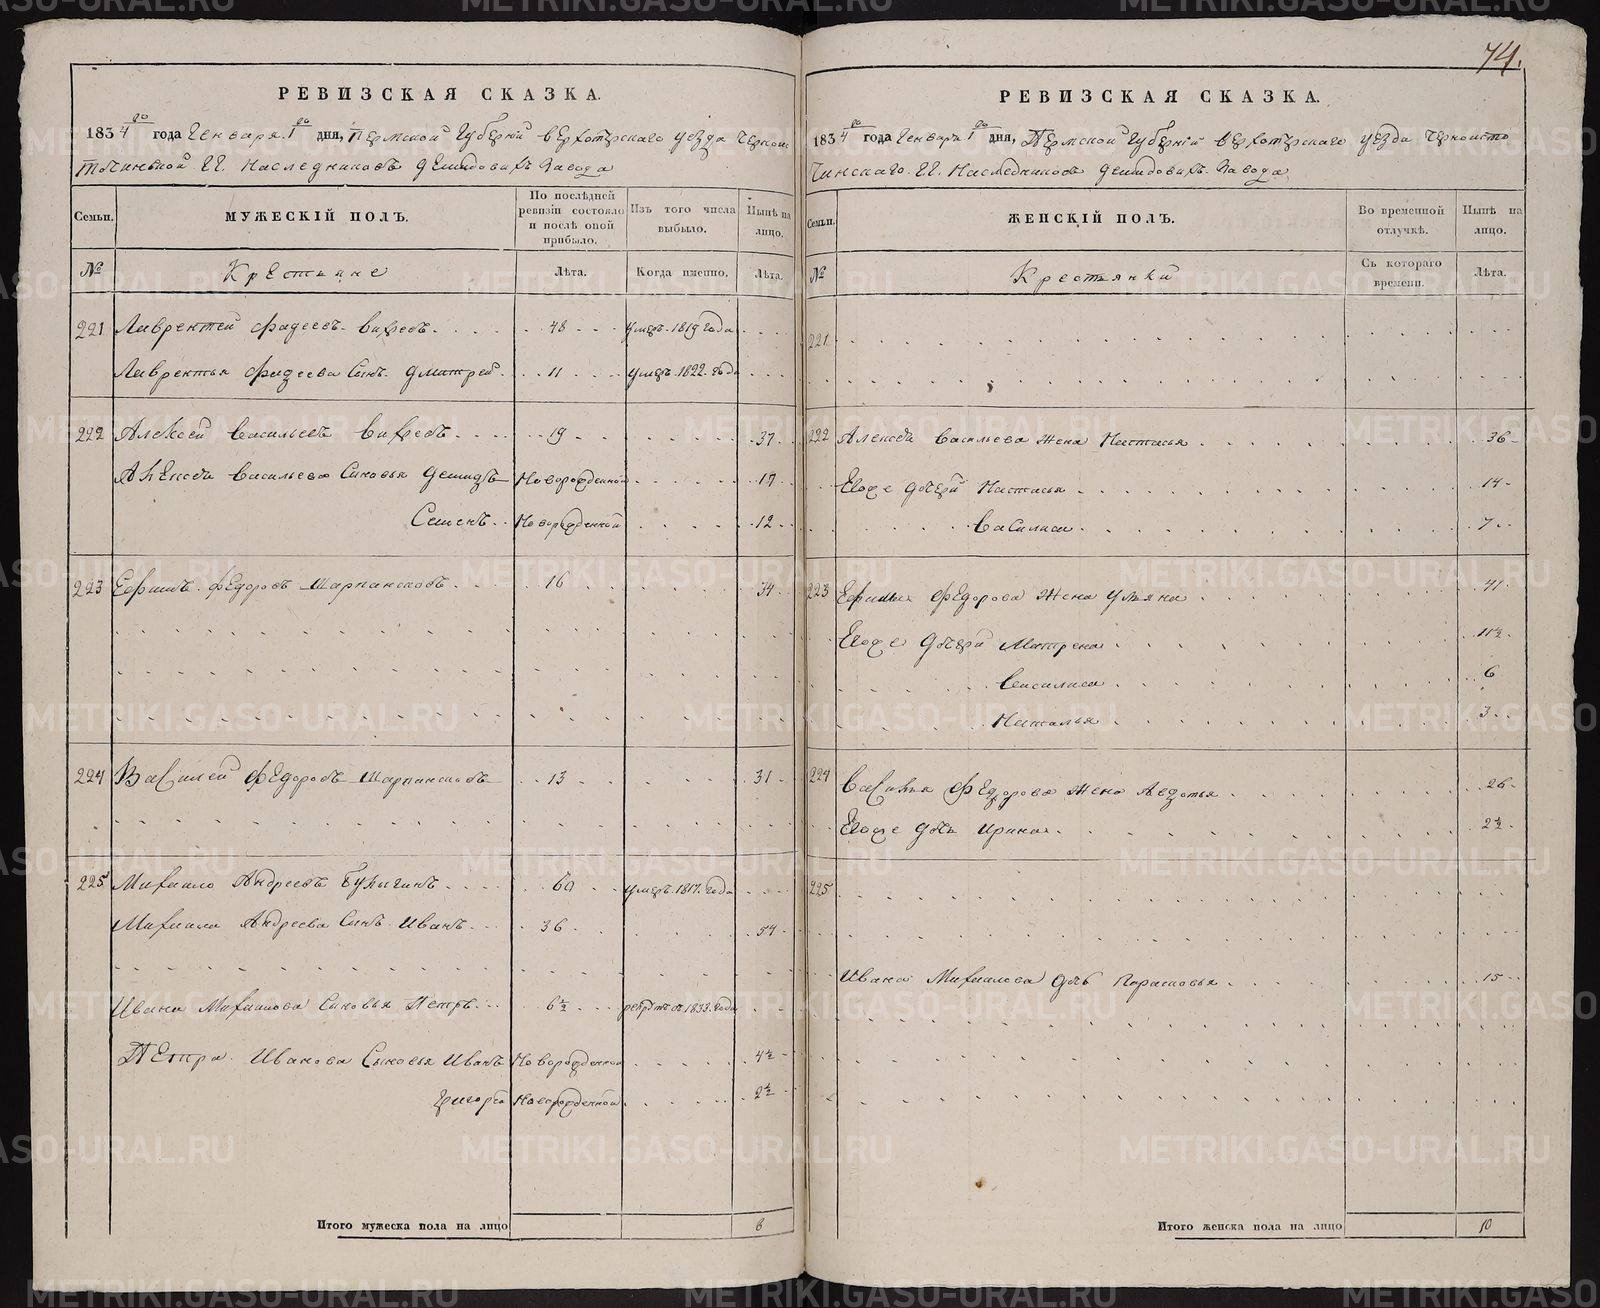 74.
РЕВИЗСКАЯ СКАЗКА.
1834го года Генваря 1го дня, Пермской Губернїи Верхотурскаго уезда Черноис
точинской ГГ. Наследниковъ Демидовыхъ Завода
Семьи.
МУЖЕСКІЙ ПОЛЪ.
По послѣдней ревизіи состояло и послѣ оной прибыло.
Изъ того числа выбыло.
Нынѣ на лицо.
№
Крестьяне
Лѣта.
Когда именно.
Лѣта.
221 Лаврентей Фадеевъ Вихревъ 48 умеръ 1819 года
Лаврентья Фадеева Сынъ Дмитрей 11 умеръ 1822 года
222 Алексей Васильевъ Вихревъ 19 37
Алексея Васильева Сыновья Демидъ Новорожденной 17
Семенъ Новорожденной 12
223 Ефимъ Федоровъ Шарпансковъ 16 34
224 Василей Федоровъ Шарпансковъ 13 31
225 Михаило Андреевъ Булыгинъ 60 умеръ 1817 года
Михаила Андреева Сынъ Иванъ 36 54
Ивана Михаилова Сыновья Петръ 6½ 1833 года
Петра Иванова Сыновья Иванъ Новорожденной 4½
Григорей Новорожденной 2½
Итого мужеска пола на лицо 8
РЕВИЗСКАЯ СКАЗКА.
1834го года Генваря 1го дня, Пермской Губернїй Верхотурскаго уезда Черноисто
чинскаго ГГ. Наследниковъ Демидовыхъ Завода
Семьи.
ЖЕНСКІЙ ПОЛЪ.
Во временной отлучкѣ.
Нынѣ на лицо.
№
Крестьянки
Съ котораго времени.
Лѣта.
221
222 Алексея Васильева Жена Настасья 36
Егоже Дочери Настасья 14
Василиса 7
223 Ефима Федорова Жена Ульяна 41
Егоже Дочери Матрена 11½
Василиса 6
Наталья 3
224 Василья Федорова Жена Авдотья 26
Егоже дочь Ирина 2½
225
Ивана Михаилова дочь Парасковья 15
Итого женска пола на лицо 10
METRIKI.GASO-URAL.RU